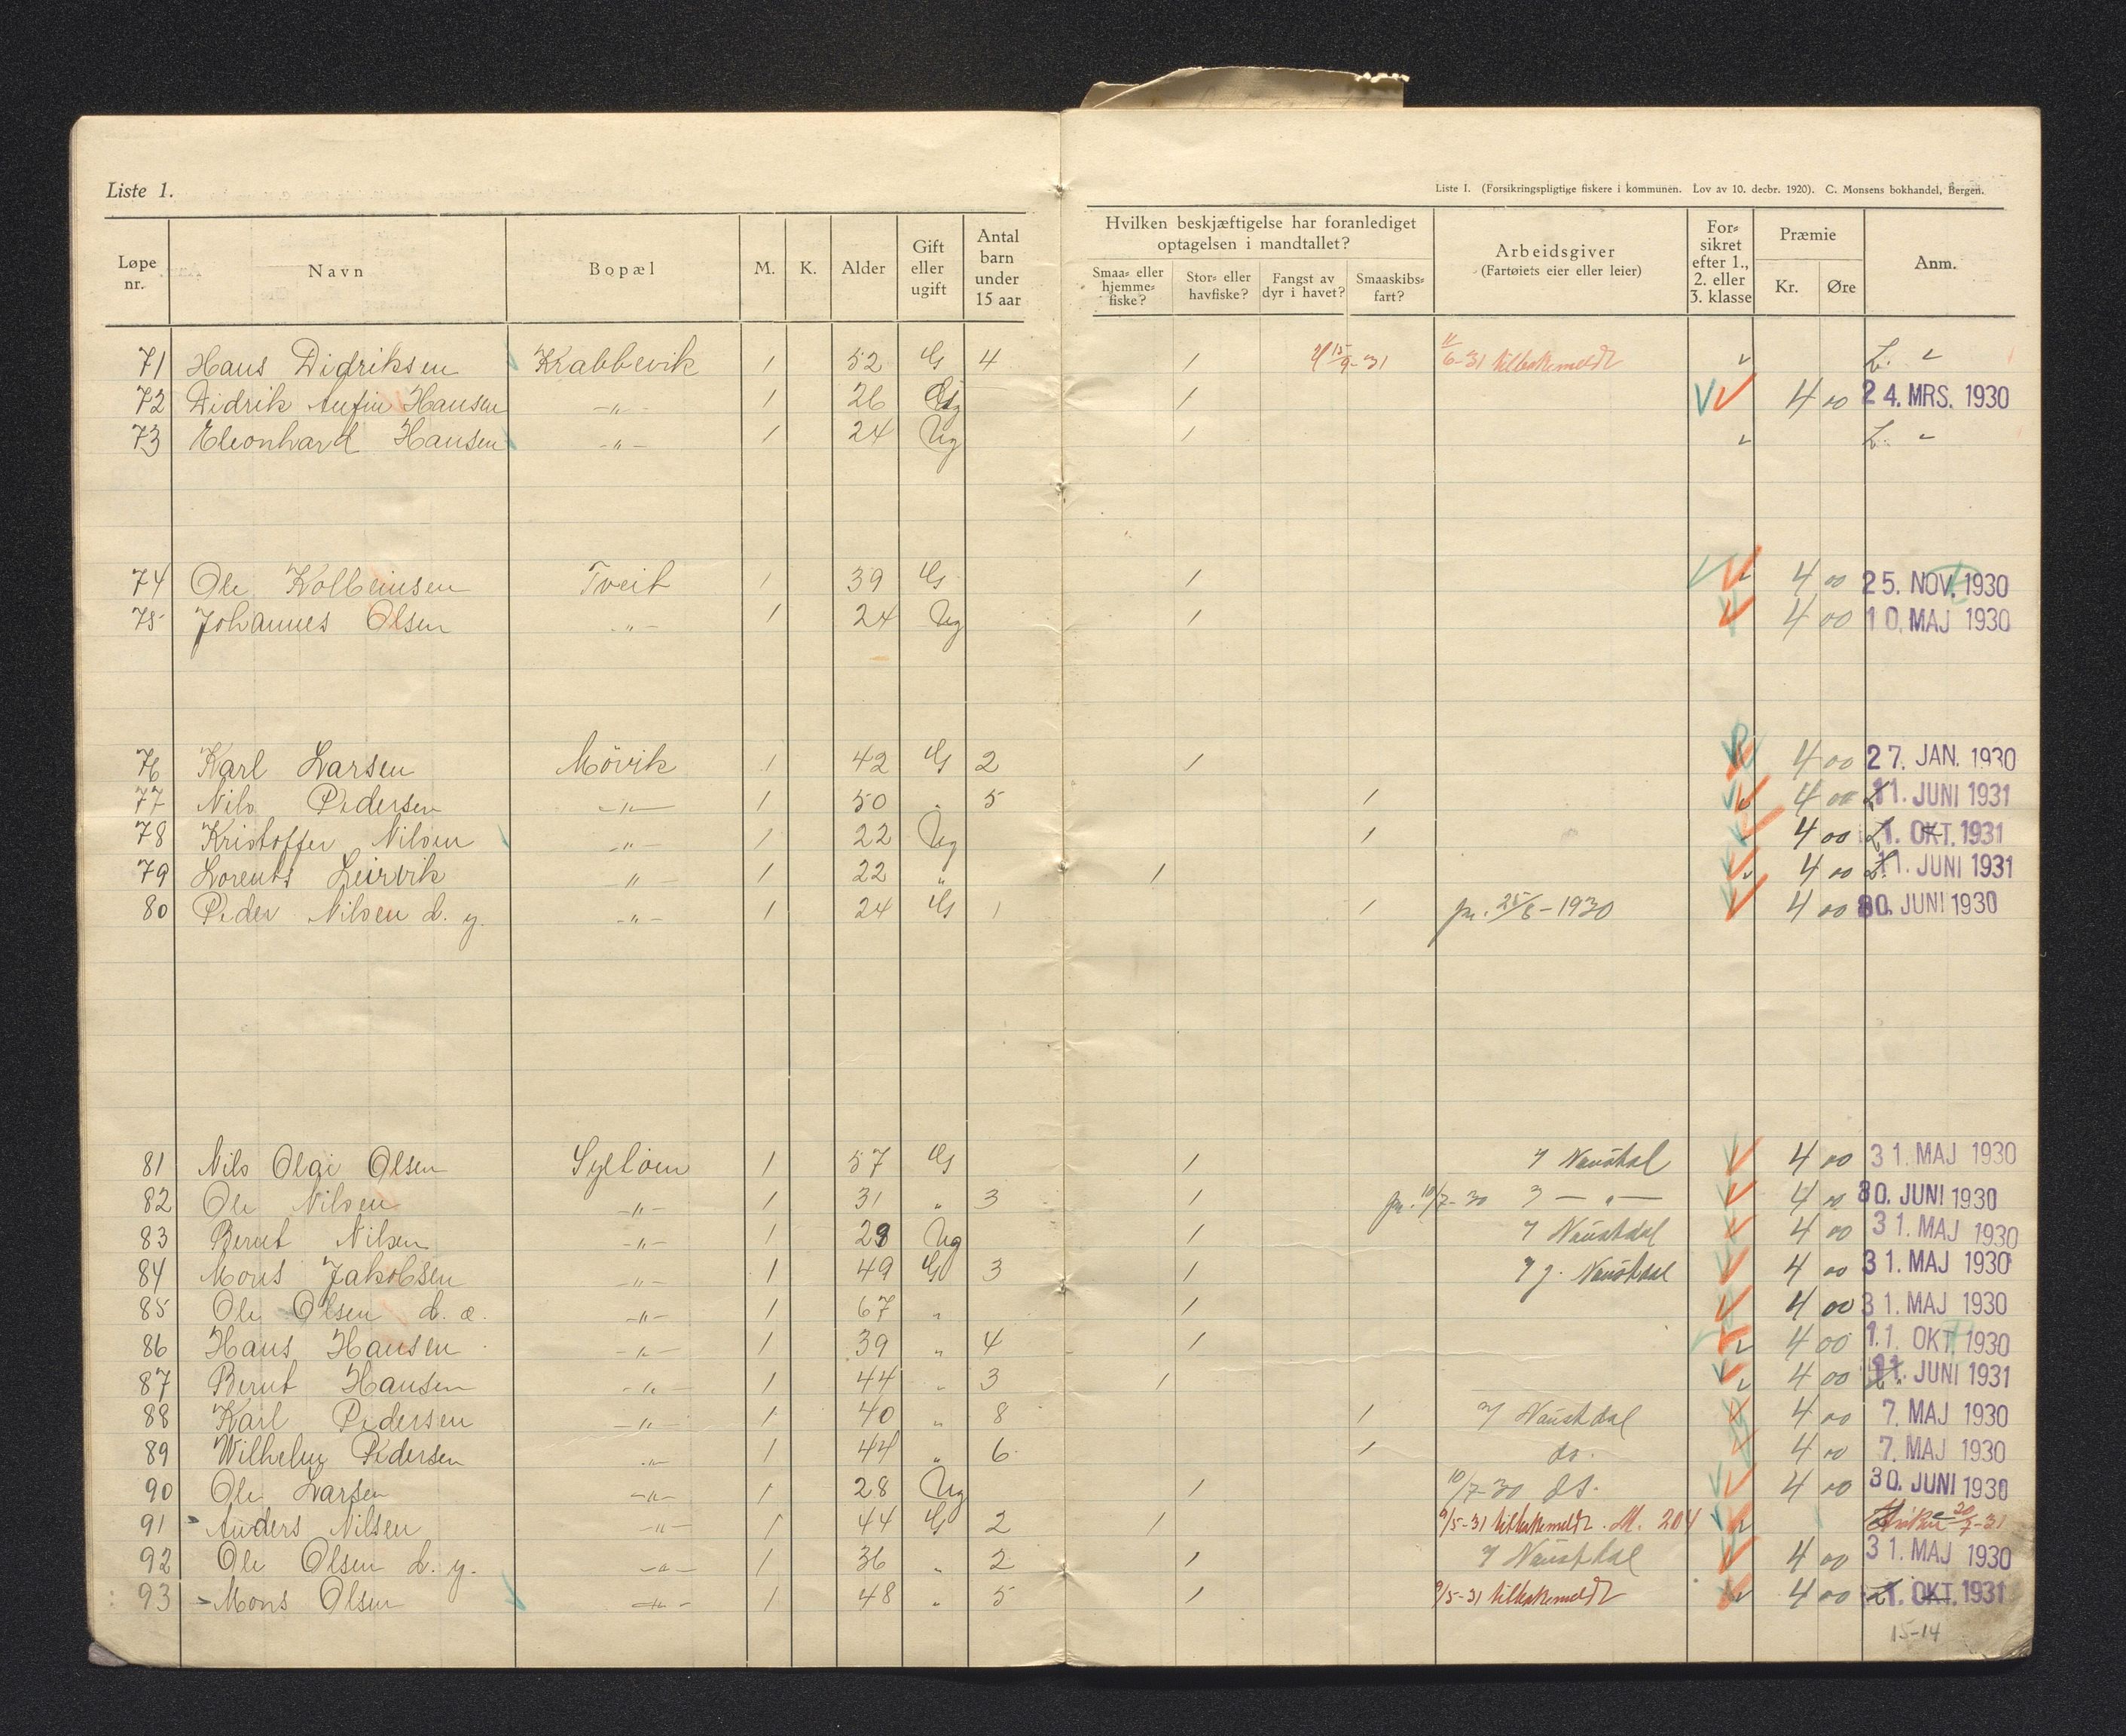 Liste 1.
Liste I. (Forsikringspligtige fiskere i kommunen. Lov av 10. decbr. 1920). C. Monsens bokhandel, Bergen.
Løpe nr. Navn Bopæl M. K. Alder Gift eller ugift Antal barn under 15 aar Hvilken beskjæftigelse har foranlediget optagelsen i mandtallet? Smaa- eller hjemme-fiske? Stor- eller havfiske? Fangst av dyr i havet? Smaaskibs-fart? Arbeidsgiver (Fartøiets eier eller leier) For-sikret efter 1., 2. eller 3. klasse Præmie Kr. Øre Anm.
71 Hans Didriksen Krabbevik 1 52 G 4 1 15/9-31 11/6-31 tilbakemeldt L.
72 Didrik Anfin Hansen -"- 1 26 1 4 00 24. MRS. 1930
73 Eleonhard Hansen -"- 1 24 Ug 1 L.
74 Ole Kolbeinsen Tveit 1 39 G 1 4 00 25. NOV. 1930
75 Johannes Olsen -"- 1 24 Ug 1 4 00 10. MAJ 1930
76 Karl Larsen Mövik 1 42 G 2 1 4 00 27. JAN. 1930
77 Nils Pedersen -"- 1 50 " 5 1 4 00 11. JUNI 1931
78 Kristoffer Nilsen -"- 1 22 Ug 1 4 00 1. OKT. 1931
79 Lorents Leirvik -"- 1 22 " 1 4 00 11. JUNI 1931
80 Peder Nilsen d. y. -"- 1 24 G 1 1 fr. 25/6-1930 4 00 30. JUNI 1930
81 Nils Olai Olsen Syltöen 1 57 G 1 Naustdal 4 00 31. MAJ 1930
82 Ole Nilsen -"- 1 31 " 3 1 fr. 10/7-30 -"- 4 00 30. JUNI 1930
83 Bernt Nilsen -"- 1 29 Ug 1 Naustdal 4 00 31. MAJ 1930
84 Mons Jakobsen -"- 1 49 G 3 1 Naustdal 4 00 31. MAJ 1930
85 Ole Olsen d. e. -"- 1 67 " 1 4 00 31. MAJ 1930
86 Hans Hansen -"- 1 39 " 4 1 4 00 11. OKT. 1930
87 Bernt Hansen -"- 1 44 " 3 1 4 00 11. JUNI 1931
88 Karl Pedersen -"- 1 40 " 8 1 Naustdal 4 00 7. MAJ 1930
89 Wilhelm Pedersen -"- 1 44 " 6 1 do. 4 00 7. MAJ 1930
90 Ole Larsen -"- 1 28 Ug 1 10/7-30 do. 4 00 30. JUNI 1930
91 Anders Nilsen -"- 1 44 G 2 1 9/5-31 tilbakemeldt. M. 204 20/7-31
92 Ole Olsen d. y. -"- 1 36 " 2 1 Naustdal 4 00 31. MAJ 1930
93 Mons Olsen -"- 1 48 " 5 1 9/5-31 tilbakemeldt 4 00 1. OKT. 1931
15-14